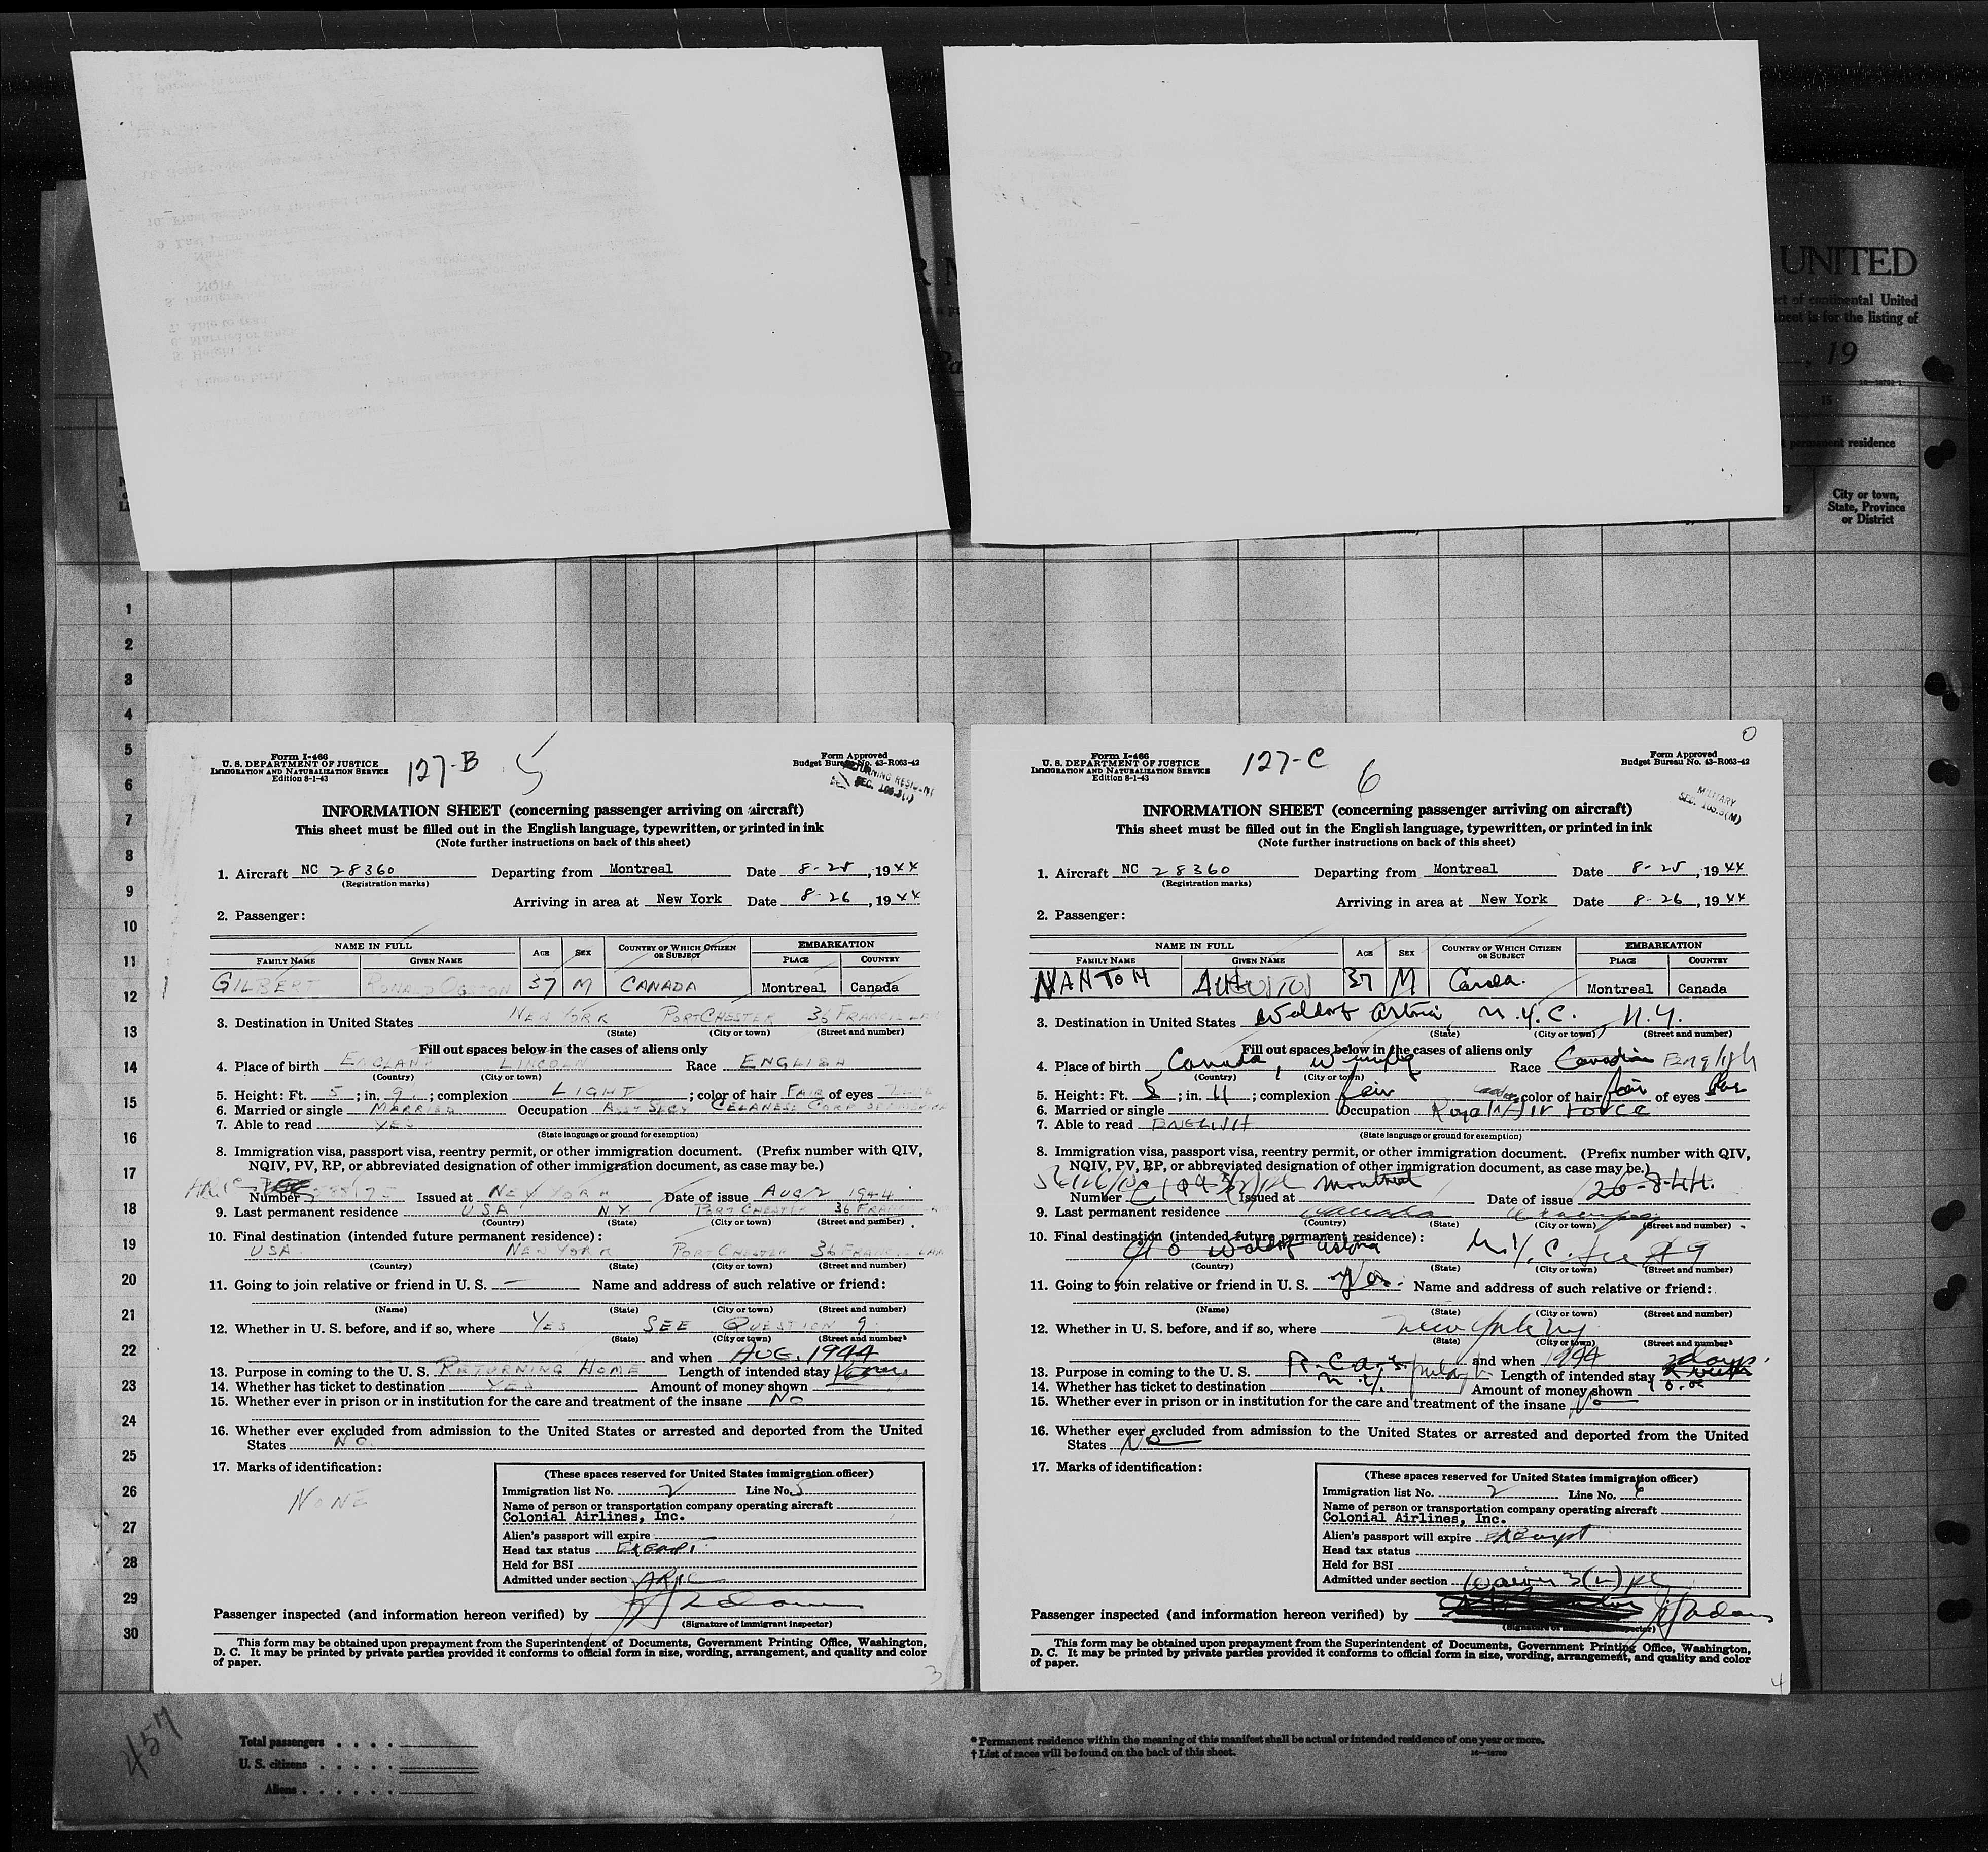 UNITED
rt of continental United
heet is for the listing of
, 19
15
permanent residence
City or town,
State, Province
or District
1
2
3
4
5
6
7
8
9
10
11
12
13
14
15
16
17
18
19
20
21
22
23
24
25
26
27
28
29
30
Form I-466
U. S. DEPARTMENT OF JUSTICE
IMMIGRATION AND NATURALIZATION SERVICE
Edition 8-1-43
127-B 5
Form Approved
Budget Bureau No. 43-R063-42
RETURNING RESIDENT
SEC. 108.3(I)
INFORMATION SHEET (concerning passenger arriving on aircraft)
This sheet must be filled out in the English language, typewritten, or printed in ink
(Note further instructions on back of this sheet)
1. Aircraft NC 28360 Departing from Montreal Date 8-25, 1944
(Registration marks)
Arriving in area at New York Date 8-26, 1944
2. Passenger:
NAME IN FULL AGE SEX COUNTRY OF WHICH CITIZEN OR SUBJECT EMBARKATION
FAMILY NAME GIVEN NAME PLACE COUNTRY
GILBERT RONALD OGSTON 37 M CANADA Montreal Canada
3. Destination in United States NEW YORK PORTCHESTER 36 FRANCIS
(State) (City or town) (Street and number)
Fill out spaces below in the cases of aliens only
4. Place of birth ENGLAND LINCOLN Race ENGLISH
(Country) (City or town)
5. Height: Ft. 5; in. 9; complexion LIGHT; color of hair FAIR of eyes
6. Married or single MARRIED Occupation ASST SECY CELANESE CORP OF
7. Able to read YES
(State language or ground for exemption)
8. Immigration visa, passport visa, reentry permit, or other immigration document. (Prefix number with QIV,
NQIV, PV, RP, or abbreviated designation of other immigration document, as case may be.)
Number Issued at NEW YORK Date of issue AUG 2 1944
9. Last permanent residence USA N.Y. PORT CHESTER 36 FRANCIS
(Country) (State) (City or town) (Street and number)
10. Final destination (intended future permanent residence):
USA NEW YORK PORT CHESTER 36 FRANCIS
(Country) (State) (City or town) (Street and number)
11. Going to join relative or friend in U. S. — Name and address of such relative or friend:
(Name) (State) (City or town) (Street and number)
12. Whether in U. S. before, and if so, where YES SEE QUESTION 9
(State) (City or town) (Street and number)
and when AUG. 1944
13. Purpose in coming to the U. S. RETURNING HOME Length of intended stay
14. Whether has ticket to destination YES Amount of money shown
15. Whether ever in prison or in institution for the care and treatment of the insane NO
16. Whether ever excluded from admission to the United States or arrested and deported from the United
States NO
17. Marks of identification:
NONE
(These spaces reserved for United States immigration officer)
Immigration list No. 2 Line No. 5
Name of person or transportation company operating aircraft
Colonial Airlines, Inc.
Alien's passport will expire
Head tax status Exempt
Held for BSI
Admitted under section
Passenger inspected (and information hereon verified) by
(Signature of immigrant inspector)
This form may be obtained upon prepayment from the Superintendent of Documents, Government Printing Office, Washington,
D. C. It may be printed by private parties provided it conforms to official form in size, wording, arrangement, and quality and color
of paper.
3
Form I-466
U. S. DEPARTMENT OF JUSTICE
IMMIGRATION AND NATURALIZATION SERVICE
Edition 8-1-43
127-C 6
0
Form Approved
Budget Bureau No. 43-R063-42
MILITARY
SEC. 108.3(M)
INFORMATION SHEET (concerning passenger arriving on aircraft)
This sheet must be filled out in the English language, typewritten, or printed in ink
(Note further instructions on back of this sheet)
1. Aircraft NC 28360 Departing from Montreal Date 8-25, 1944
(Registration marks)
Arriving in area at New York Date 8-26, 1944
2. Passenger:
NAME IN FULL AGE SEX COUNTRY OF WHICH CITIZEN OR SUBJECT EMBARKATION
FAMILY NAME GIVEN NAME PLACE COUNTRY
NANTON AUGUSTUS 37 M Canada. Montreal Canada
3. Destination in United States Waldorf Astoria, N.Y.C. N.Y.
(State) (City or town) (Street and number)
Fill out spaces below in the cases of aliens only
4. Place of birth Canada, Winnipeg Race Canadian English
(Country) (City or town)
5. Height: Ft. 5; in. 11; complexion fair; color of hair fair of eyes
6. Married or single Occupation Royal Air Force
7. Able to read ENGLISH
(State language or ground for exemption)
8. Immigration visa, passport visa, reentry permit, or other immigration document. (Prefix number with QIV,
NQIV, PV, RP, or abbreviated designation of other immigration document, as case may be.)
Number Issued at Montreal Date of issue 26-8-44.
9. Last permanent residence Canada Winnipeg
(Country) (State) (City or town) (Street and number)
10. Final destination (intended future permanent residence):
c/o Waldorf Astoria N.Y.C. See #9
(Country) (State) (City or town) (Street and number)
11. Going to join relative or friend in U. S. No. Name and address of such relative or friend:
(Name) (State) (City or town) (Street and number)
12. Whether in U. S. before, and if so, where New York NY
(State) (City or town) (Street and number)
and when 1944
13. Purpose in coming to the U. S. Length of intended stay 2 days
14. Whether has ticket to destination Amount of money shown
15. Whether ever in prison or in institution for the care and treatment of the insane No
16. Whether ever excluded from admission to the United States or arrested and deported from the United
States No
17. Marks of identification:
(These spaces reserved for United States immigration officer)
Immigration list No. 2 Line No. 6
Name of person or transportation company operating aircraft
Colonial Airlines, Inc.
Alien's passport will expire Exempt
Head tax status
Held for BSI
Admitted under section
Passenger inspected (and information hereon verified) by
This form may be obtained upon prepayment from the Superintendent of Documents, Government Printing Office, Washington,
D. C. It may be printed by private parties provided it conforms to official form in size, wording, arrangement, and quality and color
of paper.
4
457
Total passengers
U. S. citizens
Aliens
* Permanent residence within the meaning of this manifest shall be actual or intended residence of one year or more.
† List of races will be found on the back of this sheet.